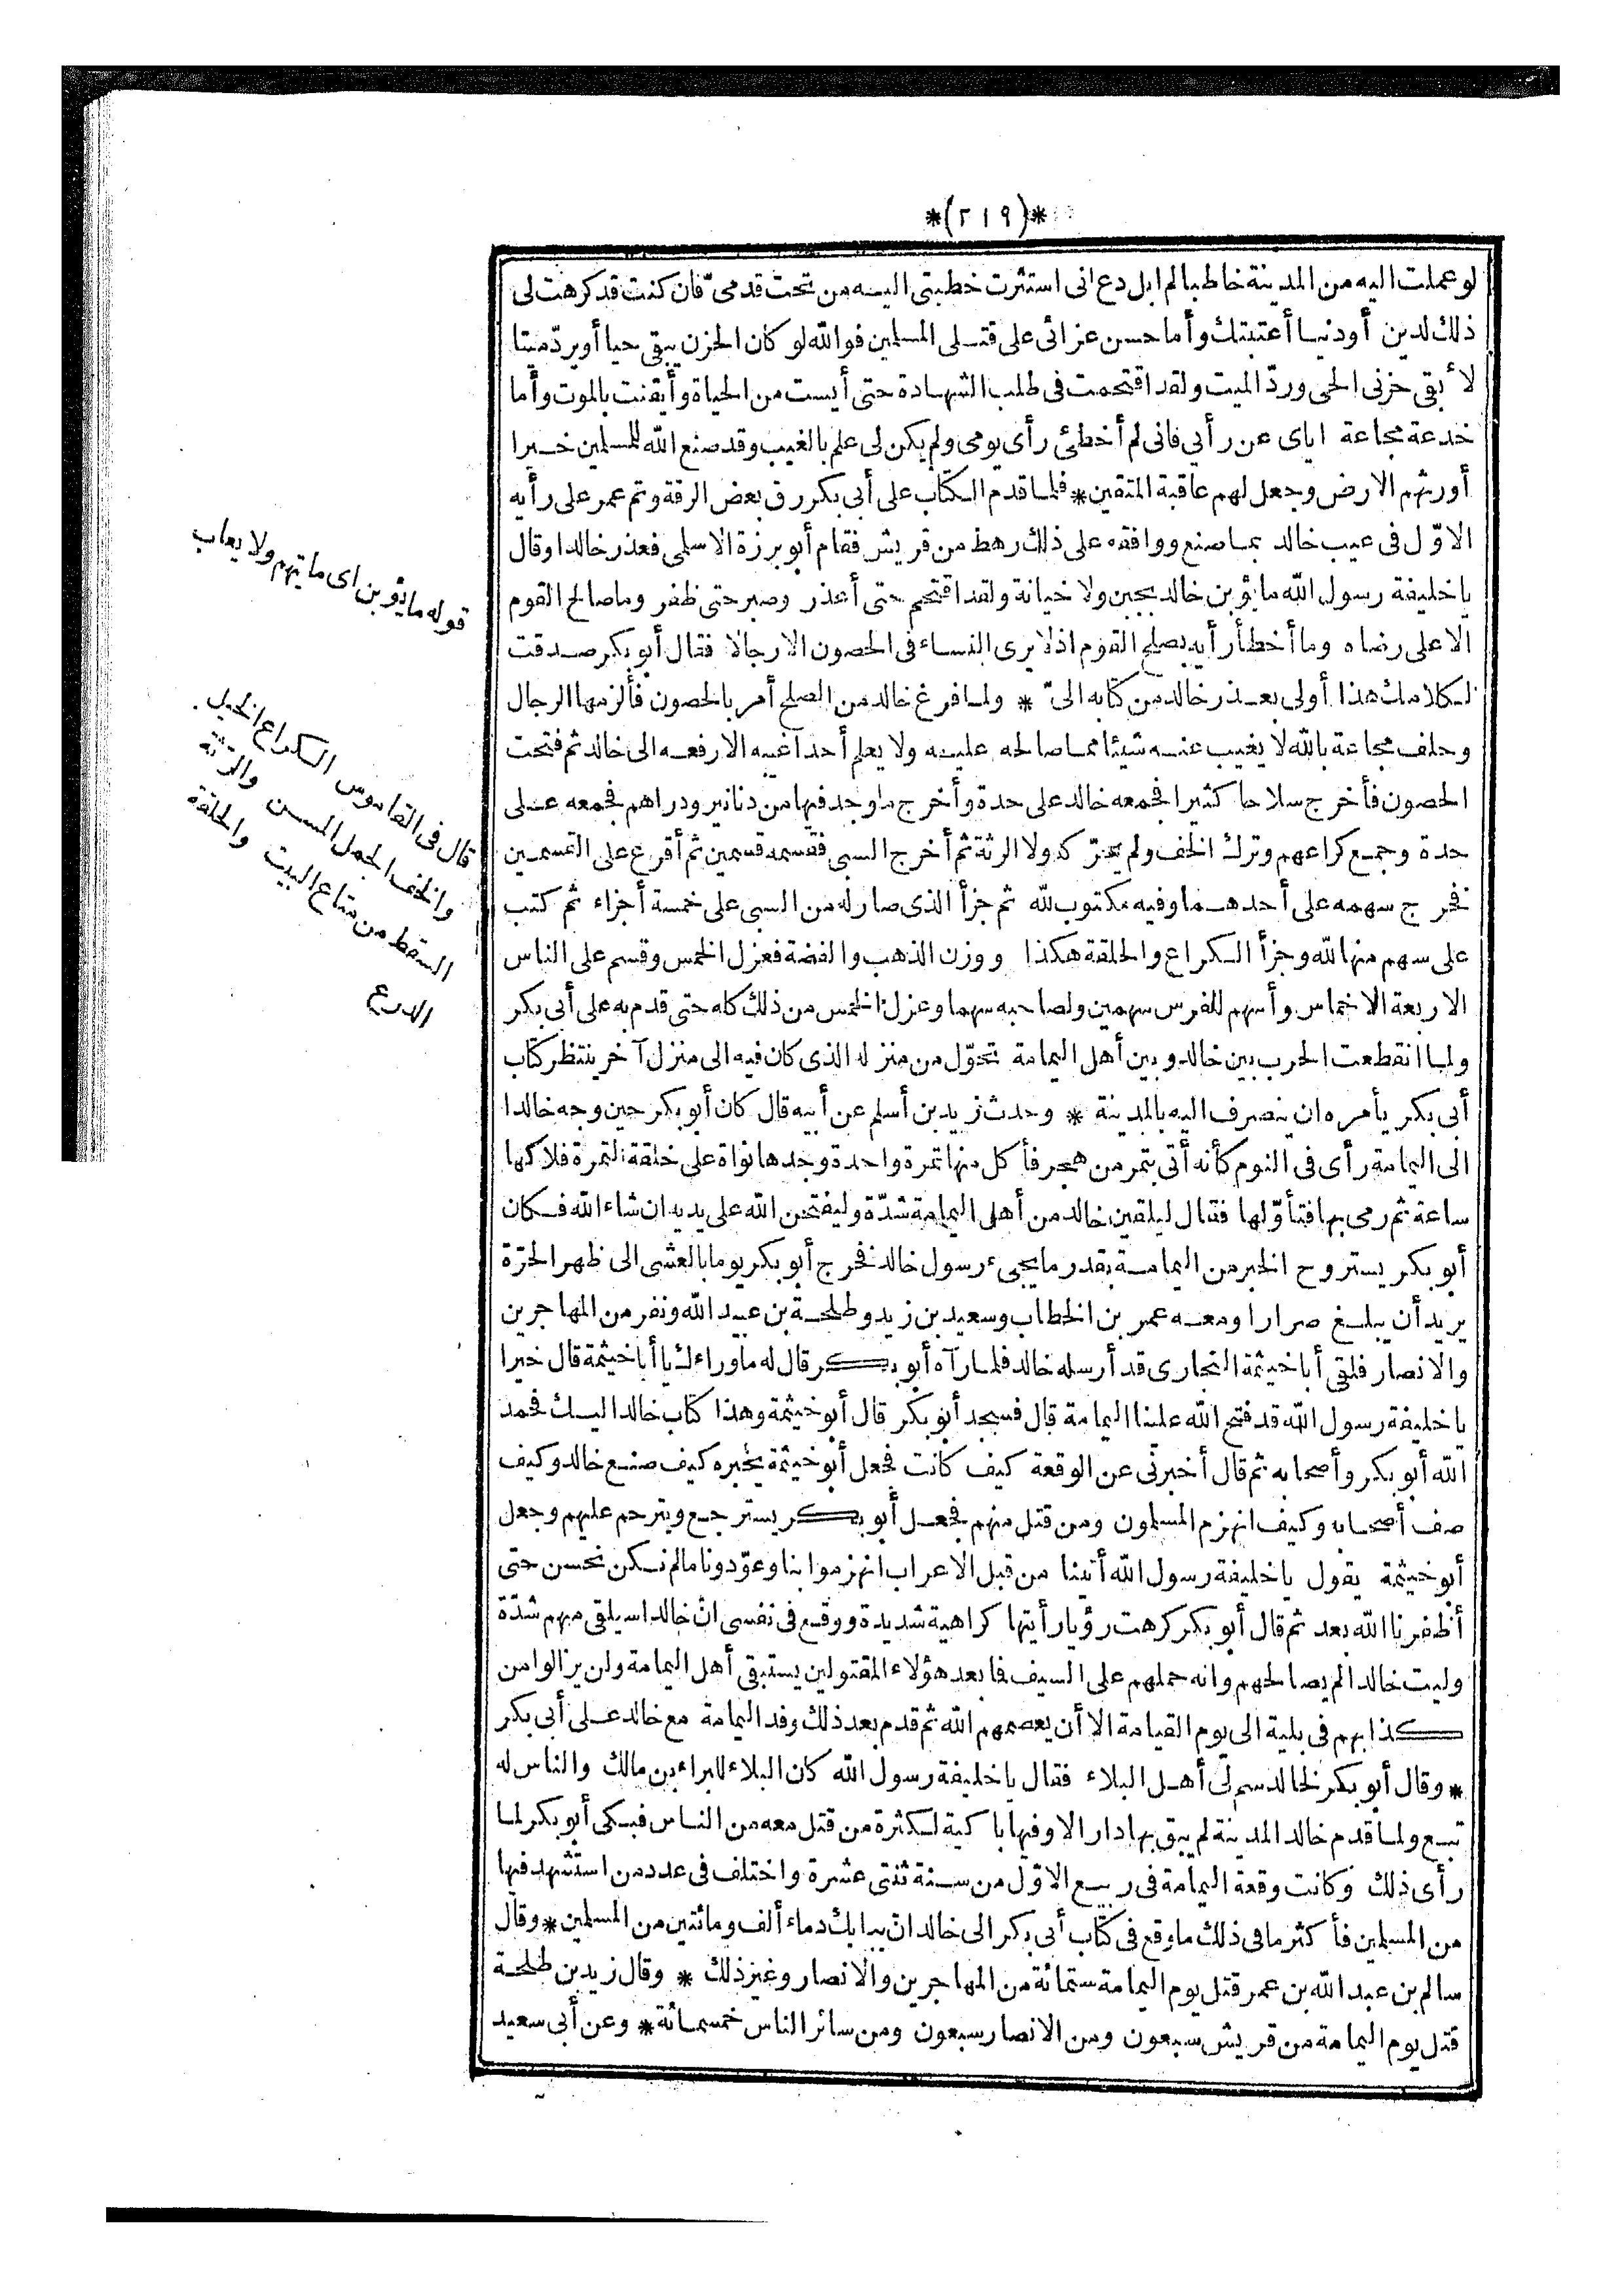 *(٢١٩)*
لو عملت اليه من المدينة خاطبا لم ابل دع انى استثرت خطبتى اليه من تحت قدمىّ فان كنت قد كرهت لى
ذلك لدين أو دنيا أعتبتك وأما حسن عزائى على قتلى المسلمين فوالله لو كان الحزن يبقى حيا أو يردّ ميتا
لأبقى حزنى الحى وردّ الميت ولقد اقتحمت فى طلب الشهادة حتى أيست من الحياة وأيقنت بالموت وأما
خدعة مجاعة اياى عن رأيى فانى لم أخطئ رأى يومى ولم يكن لى علم بالغيب وقد صنع الله للمسلمين خيرا
أورثهم الارض وجعل لهم عاقبة المتقين * فلما قدم الكتاب على أبى بكر رق بعض الرقة وتم عمر على رأيه
الاوّل فى عيب خالد بما صنع ووافقه على ذلك رهط من قريش فقام أبو برزة الاسلمى فعذر خالدا وقال
يا خليفة رسول الله ما يؤبن خالد بجبن ولا خيانة ولقد اقتحم حتى أعذر وصبر حتى ظفر وما صالح القوم
الا على رضاه وما أخطأ رأيه بصلح القوم اذ لا يرى النساء فى الحصون الا رجالا فقال أبو بكر صدقت
لكلامك هذا أولى بعذر خالد من كتابه الىّ * ولما فرغ خالد من الصلح أمر بالحصون فألزمها الرجال
وحلف مجاعة بالله لا يغيب عنه شيئا مما صالحه عليه ولا يعلم أحدا غيبه الا رفعه الى خالد ثم فتحت
الحصون فأخرج سلاحا كثيرا فجمعه خالد على حدة وأخرج ما وجد فيها من دنانير ودراهم فجمعه على
حدة وجمع كراعهم وترك الخف ولم يحرّكه ولا الرثة ثم أخرج السبى فقسمه قسمين ثم أقرع على القسمين
فخرج سهمه على أحدهما وفيه مكتوب لله ثم جزأ الذى صار له من السبى على خمسة أجزاء ثم كتب
على سهم منها لله وجزأ الكراع والحلقة هكذا ووزن الذهب والفضة فعزل الخمس وقسم على الناس
الاربعة الاخماس وأسهم للفرس سهمين ولصاحبه سهما وعزل الخمس من ذلك كله حتى قدم به على أبى بكر
ولما انقطعت الحرب بين خالد وبين أهل اليمامة تحوّل من منزله الذى كان فيه الى منزل آخر ينتظر كتاب
أبى بكر يأمره ان ينصرف اليه بالمدينة * وحدث زيد بن أسلم عن أبيه قال كان أبو بكر حين وجه خالدا
الى اليمامة رأى فى النوم كأنه أتى بتمر من هجر فأكل منها تمرة واحدة وجدها نواة على خلقة التمرة فلاكها
ساعة ثم رمى بها فتأوّلها فقال ليلقين خالد من أهل اليمامة شدّة وليفتحن الله على يديه ان شاء الله فكان
أبو بكر يستروح الخبر من اليمامة بقدر ما يجىء رسول خالد فخرج أبو بكر يوما بالعشى الى ظهر الحرّة
يريد أن يبلغ صرارا ومعه عمر بن الخطاب وسعيد بن زيد وطلحة بن عبيد الله ونفر من المهاجرين
والانصار فلقى أبا خيثمة النجارى قد أرسله خالد فلما رآه أبو بكر قال له ما وراءك يا أبا خيثمة قال خيرا
يا خليفة رسول الله قد فتح الله علينا اليمامة قال فسجد أبو بكر قال أبو خيثمة وهذا كتاب خالد اليك فحمد
الله أبو بكر وأصحابه ثم قال أخبرنى عن الوقعة كيف كانت فجعل أبو خيثمة يخبره كيف صنع خالد وكيف
صف أصحابه وكيف انهزم المسلمون ومن قتل منهم فجعل أبو بكر يسترجع ويترحم عليهم وجعل
أبو خيثمة يقول يا خليفة رسول الله أتينا من قبل الاعراب انهزموا بنا وعوّدونا ما لم نكن نحسن حتى
أظفرنا الله بعد ثم قال أبو بكر كرهت رؤيا رأيتها كراهية شديدة ووقع فى نفسى انّ خالدا سيلقى منهم شدّة
وليت خالدا لم يصالحهم وانه حملهم على السيف فما بعد هؤلاء المقتولين يستبقى أهل اليمامة ولن يزالوا من
كذابهم فى بلية الى يوم القيامة الا أن يعصمهم الله ثم قدم بعد ذلك وفد اليمامة مع خالد على أبى بكر
* وقال أبو بكر لخالد سم لى أهل البلاء فقال يا خليفة رسول الله كان البلاء للبراء بن مالك والناس له
تبع ولما قدم خالد المدينة لم يبق بها دار الا وفيها باكية لكثرة من قتل معه من الناس فبكى أبو بكر لما
رأى ذلك وكانت وقعة اليمامة فى ربيع الاوّل من سنة ثنتى عشرة واختلف فى عدد من استشهد فيها
من المسلمين فأكثر ما فى ذلك ما وقع فى كتاب أبى بكر الى خالد انّ ببابك دماء ألف ومائتين من المسلمين * وقال
سالم بن عبد الله بن عمر قتل يوم اليمامة ستمائة من المهاجرين والانصار وغير ذلك * وقال زيد بن طلحة
قتل يوم اليمامة من قريش سبعون ومن الانصار سبعون ومن سائر الناس خمسمائة * وعن أبى سعيد
قوله ما يؤبن اى ما يتهم ولا يعاب
قال فى القاموس الكراع الخيل
والخف الجمل المسن والرثة
السقط من متاع البيت والحلقة
الدرع